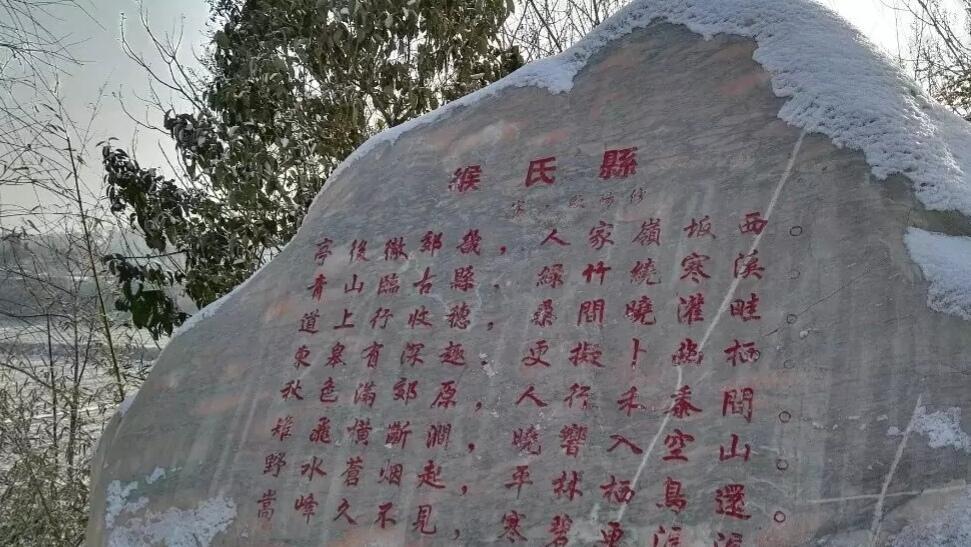 緱氏縣
宋·歐陽修
亭後徼郊畿，人家嶺坂西。
青山臨古縣，綠竹繞寒溪。
道上行收穗，桑間曉灌畦。
東皋有深趣，更擬卜幽栖。
秋色滿郊原，人行禾黍間。
雉飛橫斷澗，曉響入空山。
野水蒼烟起，平林栖鳥還。
嵩峰久不見，寒碧更